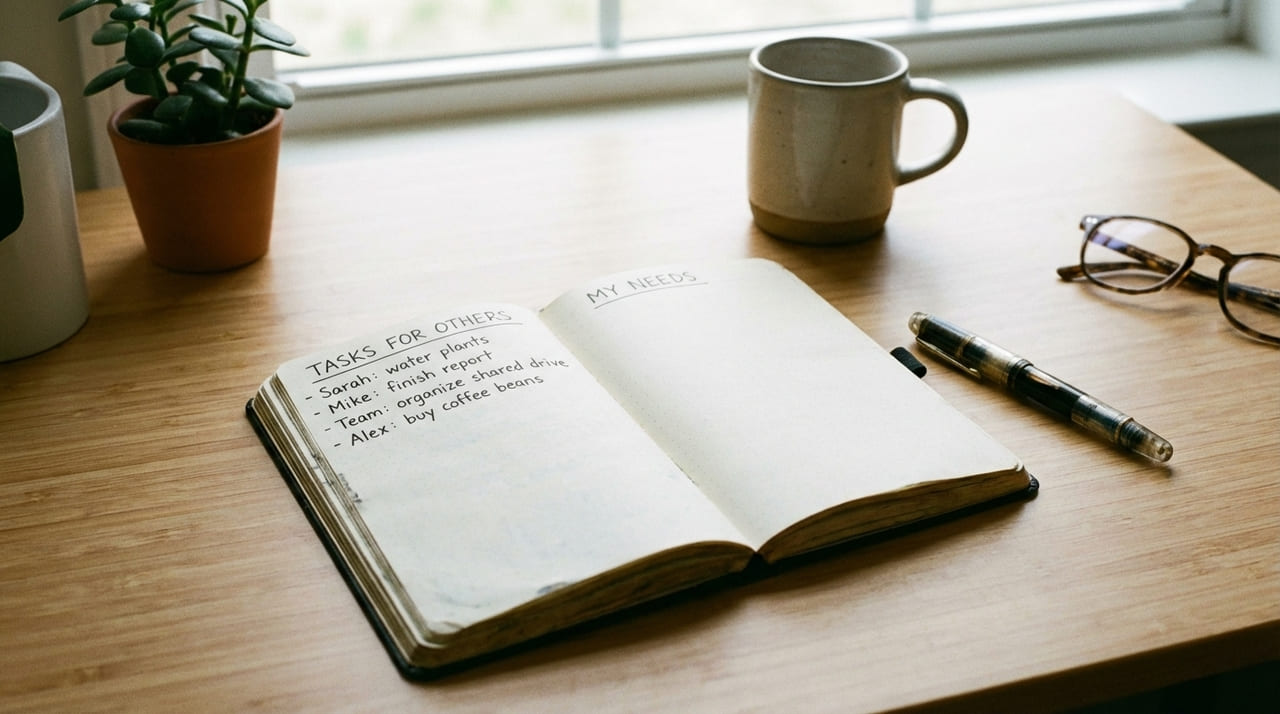 TASKS FOR OTHERS
- Sarah: water plants
- Mike: finish report
- Team: organize shared drive
- Alex: buy coffee beans
MY NEEDS